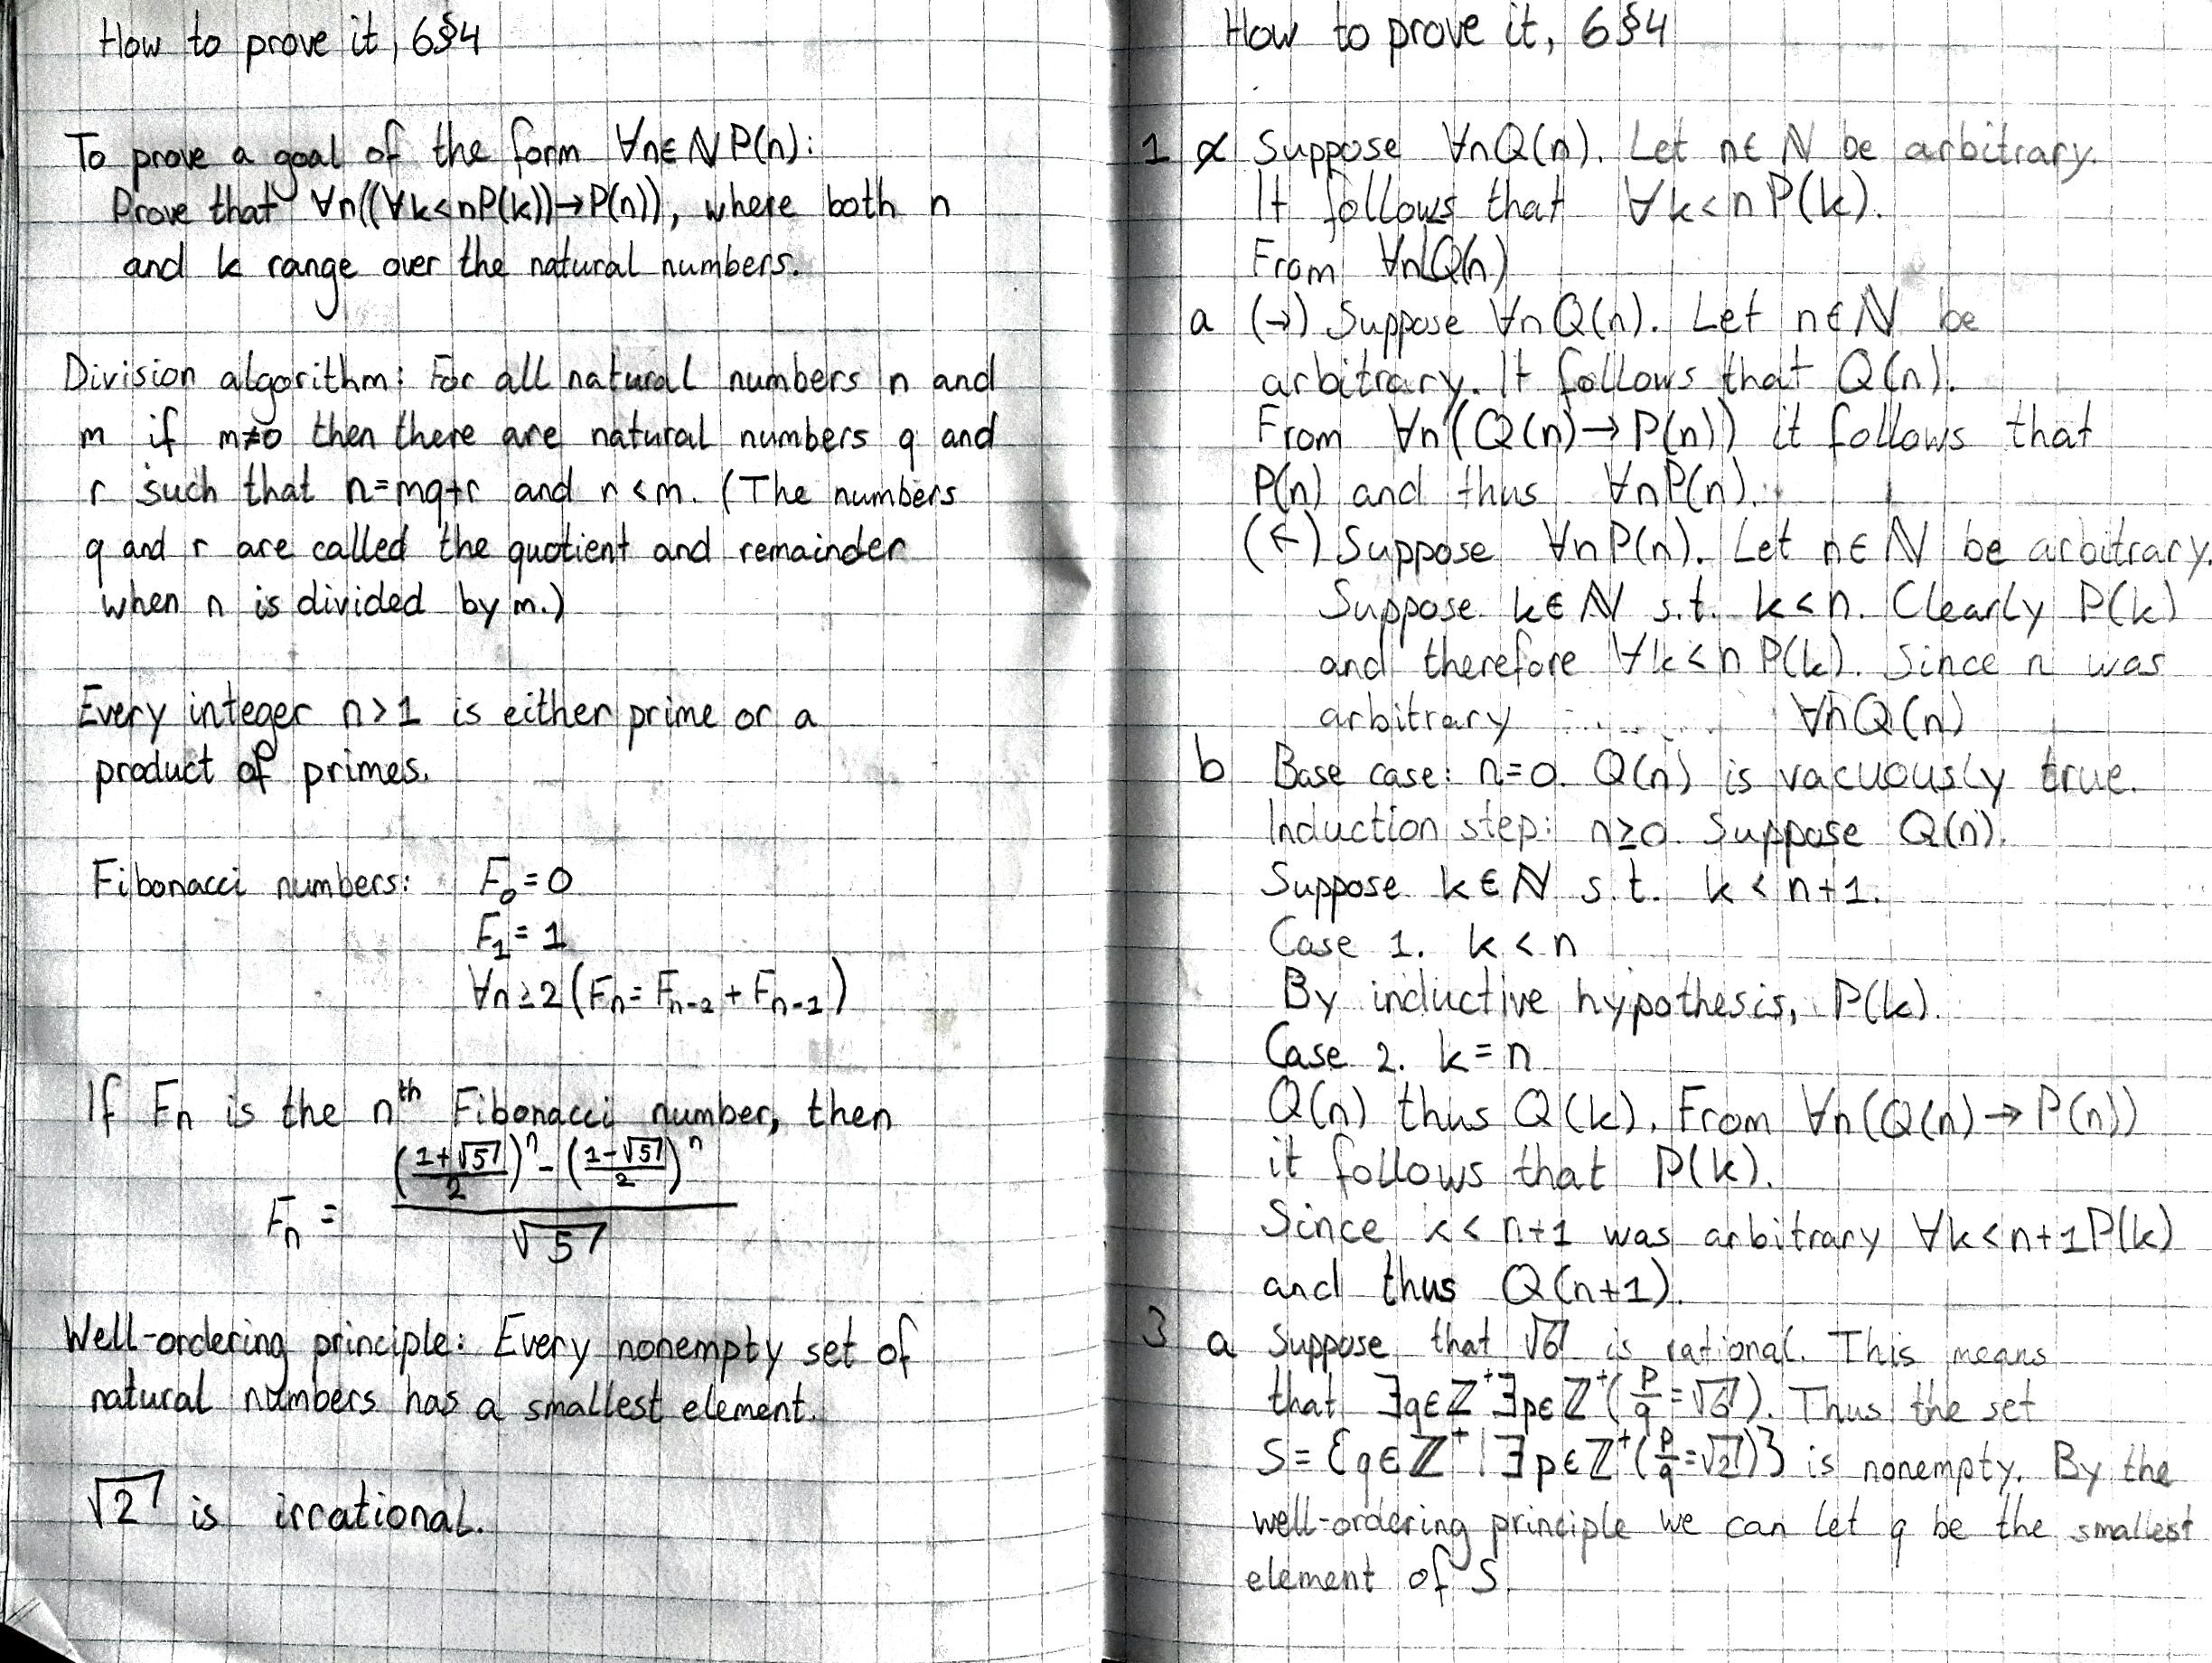 How to prove it, 6§4
To prove a goal of the form ∀n∈ℕ P(n):
Prove that ∀n((∀k<nP(k))→P(n)), where both n
and k range over the natural numbers.
Division algorithm: For all natural numbers n and
m if m≠0 then there are natural numbers q and
r such that n=mq+r and r<m. (The numbers
q and r are called the quotient and remainder
when n is divided by m.)
Every integer n>1 is either prime or a
product of primes.
Fibonacci numbers: F₀=0
F₁=1
∀n≥2(Fₙ=Fₙ₋₂+Fₙ₋₁)
If Fₙ is the nᵗʰ Fibonacci number, then
Fₙ = (((1+√5)/2)ⁿ-((1-√5)/2)ⁿ)/√5
Well-ordering principle: Every nonempty set of
natural numbers has a smallest element.
√2 is irrational.
How to prove it, 6§4
1 a Suppose ∀nQ(n). Let n∈ℕ be arbitrary.
It follows that ∀k<nP(k).
From ∀nQ(n)
a (→) Suppose ∀nQ(n). Let n∈ℕ be
arbitrary. It follows that Q(n).
From ∀n(Q(n)→P(n)) it follows that
P(n) and thus ∀nP(n).
(←) Suppose ∀nP(n). Let n∈ℕ be arbitrary.
Suppose k∈ℕ s.t. k<n. Clearly P(k)
and therefore ∀k<nP(k). Since n was
arbitrary ∀nQ(n)
b Base case: n=0. Q(n) is vacuously true.
Induction step: n≥0. Suppose Q(n).
Suppose k∈ℕ s.t. k<n+1.
Case 1. k<n
By inductive hypothesis, P(k).
Case 2. k=n
Q(n) thus Q(k). From ∀n(Q(n)→P(n))
it follows that P(k).
Since k<n+1 was arbitrary ∀k<n+1P(k)
and thus Q(n+1).
3 a Suppose that √6 is rational. This means
that ∃q∈ℤ⁺∃p∈ℤ⁺(p/q=√6). Thus the set
S={q∈ℤ⁺|∃p∈ℤ⁺(p/q=√2)} is nonempty. By the
well-ordering principle we can let q be the smallest
element of S.